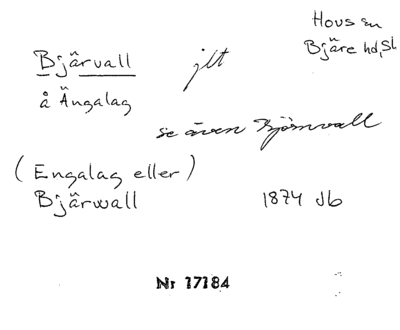 Hovs sn
Bjäre hd, Sk
Bjärvall jlt
å Ängalag
se även Björnvall
(Engalag eller)
Bjärwall 1874 Jb
Nr 17184